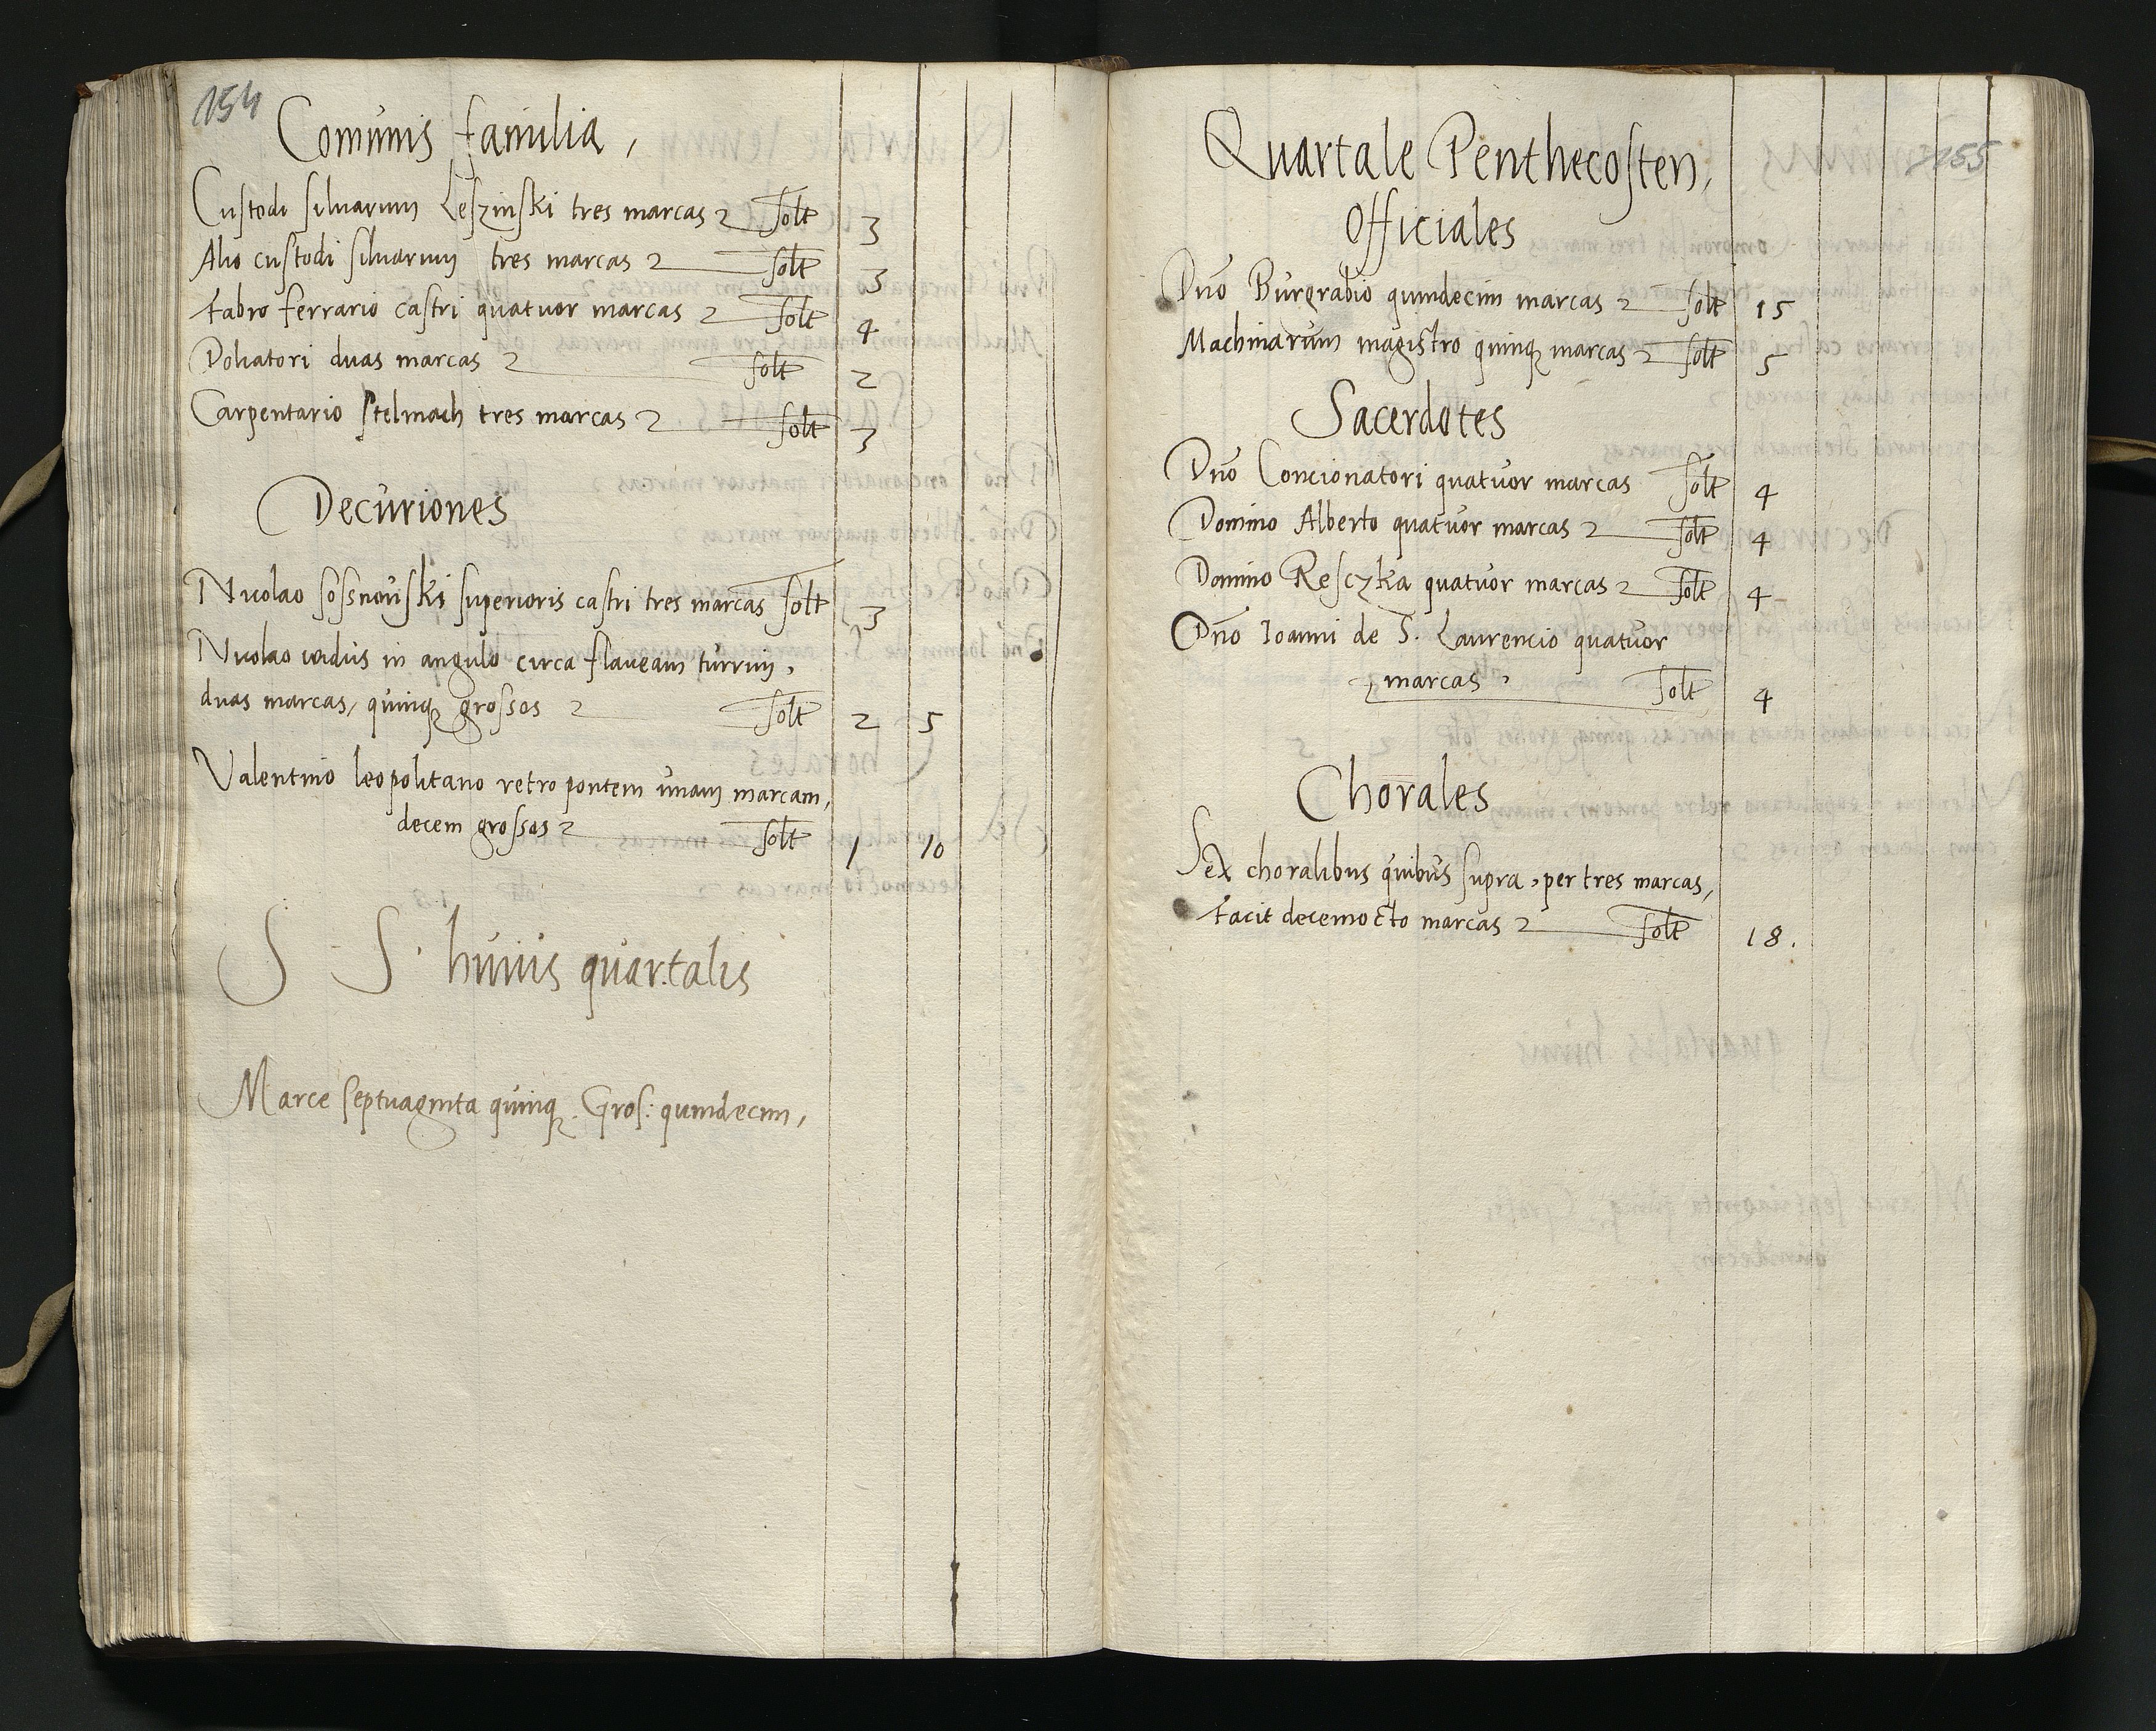 154
Comunis familia,
Custodi siluarum Leszinski tres marcas solt 3
Alio custodi siluarum tres marcas solt 3
Fabro ferrario castri quatuor marcas solt 4
Doliatori duas marcas solt 2
Carpentario Stelmach tres marcas solt 3
Decuriones
Nicolao Sossnouski superioris castri tres marcas solt 3
Nicolao in angulo circa flaueam turrim,
duas marcas, quinq grossos solt 2 5
Valentino leopolitano retro pontem unam marcam,
decem grossos solt 1 10
S S. huius quartalis
Marce septuaginta quinq. Gros: quindecim,
155
Quartale Penthecosten,
Officiales
Dno Burgrabio quindecim marcas solt 15
Machinarum magistro quinq marcas solt 5
Sacerdotes
Dno Concionatori quatuor marcas solt 4
Domino Alberto quatuor marcas solt 4
Domino Resczka quatuor marcas solt 4
Dno Ioanni de S. Laurencio quatuor
marcas, solt 4
Chorales
Sex choralibus quibus supra, per tres marcas,
facit decemocto marcas solt 18.